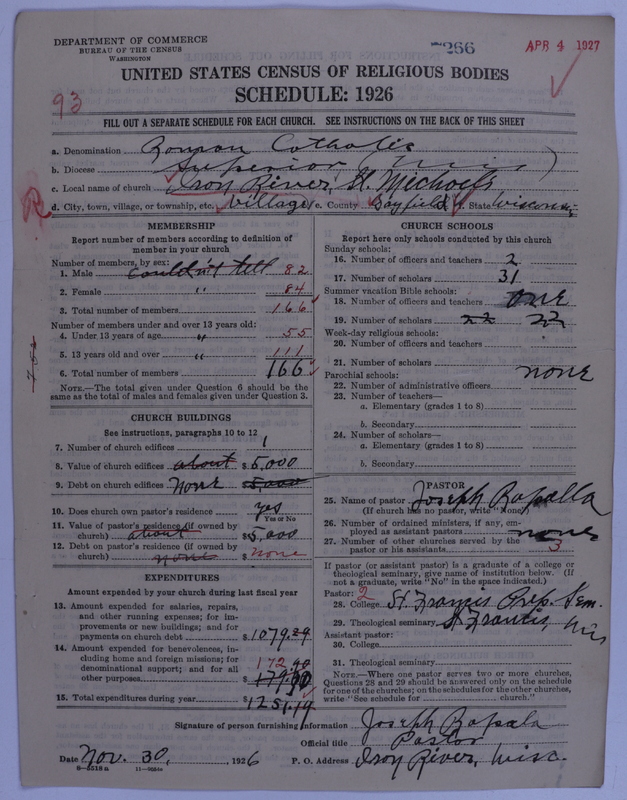 DEPARTMENT OF COMMERCE
BUREAU OF THE CENSUS
WASHINGTON
7266
APR 4 1927
UNITED STATES CENSUS OF RELIGIOUS BODIES
SCHEDULE: 1926
93
FILL OUT A SEPARATE SCHEDULE FOR EACH CHURCH. SEE INSTRUCTIONS ON THE BACK OF THIS SHEET
a. Denomination Roman Catholic
b. Diocese Superior (Wis)
c. Local name of church Iron River, St. Michael's
d. City, town, village, or township, etc. Village e. County Bayfield f. State Wisconsin
R
MEMBERSHIP
Report number of members according to definition of
member in your church
Number of members, by sex:
1. Male couldn't tell 82
2. Female " 84
3. Total number of members 166
Number of members under and over 13 years old:
4. Under 13 years of age " 55
5. 13 years old and over " 111
6. Total number of members 166
NOTE.—The total given under Question 6 should be
same as the total of males and females given under Question 3.
CHURCH BUILDINGS
See instructions, paragraphs 10 to 12
7. Number of church edifices 1
8. Value of church edifices about $ 5,000
9. Debt on church edifices none $ 5,000
10. Does church own pastor's residence yes
Yes or No
11. Value of pastor's residence (if owned by
church) about $ 5,000
12. Debt on pastor's residence (if owned by
church) none $ none
EXPENDITURES
Amount expended by your church during last fiscal year
13. Amount expended for salaries, repairs,
and other running expenses; for im-
provements or new buildings; and for
payments on church debt $ 1079.29
14. Amount expended for benevolences, in-
cluding home and foreign missions; for
denominational support; and for all
other purposes 172.90
$ 179.90
15. Total expenditures during year $ 1251.19
CHURCH SCHOOLS
Report here only schools conducted by this church
Sunday schools:
16. Number of officers and teachers 2
17. Number of scholars 31
Summer vacation Bible schools:
18. Number of officers and teachers one
19. Number of scholars 22 22
Week-day religious schools:
20. Number of officers and teachers
21. Number of scholars
Parochial schools: none
22. Number of administrative officers
23. Number of teachers—
a. Elementary (grades 1 to 8)
b. Secondary
24. Number of scholars—
a. Elementary (grades 1 to 8)
b. Secondary
PASTOR
25. Name of pastor Joseph Rapalla
(If church has no pastor, write "None")
26. Number of ordained ministers, if any, em-
ployed as assistant pastors none
27. Number of other churches served by the
pastor or his assistants 3
If pastor (or assistant pastor) is a graduate of a college or
theological seminary, give name of institution below. (If
not a graduate, write "No" in the space indicated.)
Pastor: 2
28. College St. Francis Prep. Sem.
29. Theological seminary St Francis, Wis
Assistant pastor:
30. College
31. Theological seminary
NOTE.—Where one pastor serves two or more churches,
Questions 28 and 29 should be answered only on the schedule
for one of the churches; on the schedules for the other churches,
write "See schedule for church."
Signature of person furnishing information Joseph Rapala
Official title Pastor
Date Nov. 30, 1926 P. O. Address Iron River, Wisc.
8—5518 a